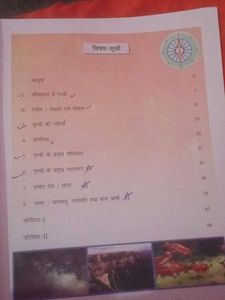 विषय-सूची
आमुख
1. सौरमंडल में पृथ्वी 1
2. ग्लोब : अक्षांश एवं देशांतर 11
3. पृथ्वी की गतियाँ 19
4. मानचित्र 26
5. पृथ्वी के प्रमुख परिमंडल 31
6. पृथ्वी के प्रमुख स्थलरूप 41
7. हमारा देश : भारत 49
8. भारत : जलवायु, वनस्पति तथा वन्य प्राणी 56
परिशिष्ट-I 65
परिशिष्ट-II 66